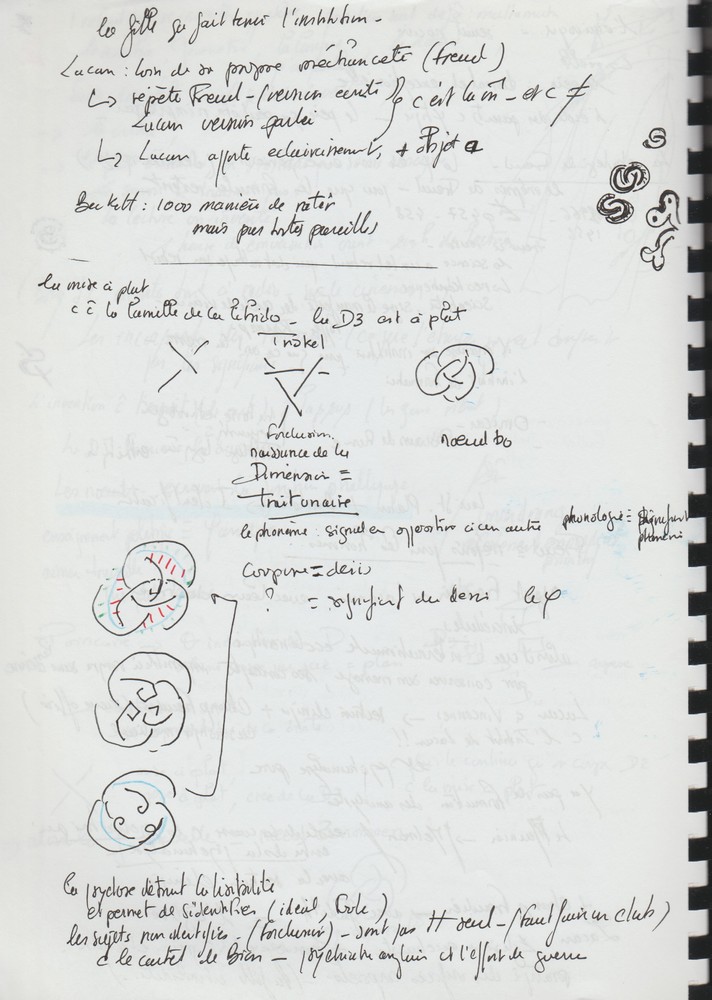 la fille qui fait tenir l'institution -
Lacan : loin de sa propre méchanceté (Freud)
↳ répète Freud - (version écrite
Lacan version parlée
c'est la m̂ - et c ≠
↳ Lacan apporte eclaircissement, + objet a
Beckett : 1000 manières de rater
mais pas toutes pareilles
la mise à plat
c'ê la lamelle de la libido - la D3 est à plat
Triskel
forclusion.
naissance de la
Dimension =
trait unaire
noeud bo
le phonème : signal en opposition à un autre
phonologie =
Coupure = désir
? = signifiant du désir le φ
la psychose détruit la lisibilité
et permet de s'identifier (idéal,
les sujets non identifiés - (forclusion) - sont pas tt seul - (faut faire un club)
c le cartel de Bion - psychiatrie anglaise et l'effort de guerre